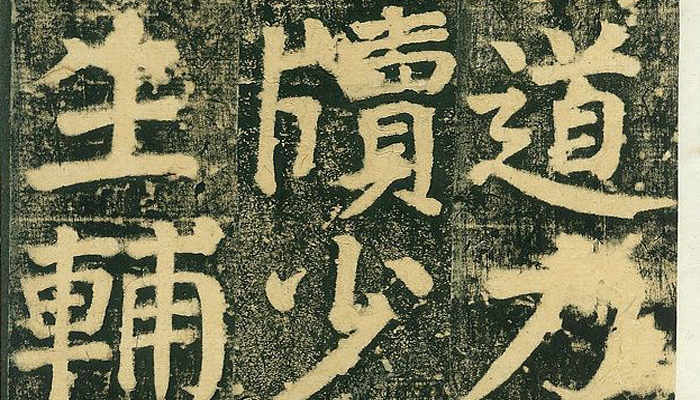 道
牘少
生輔